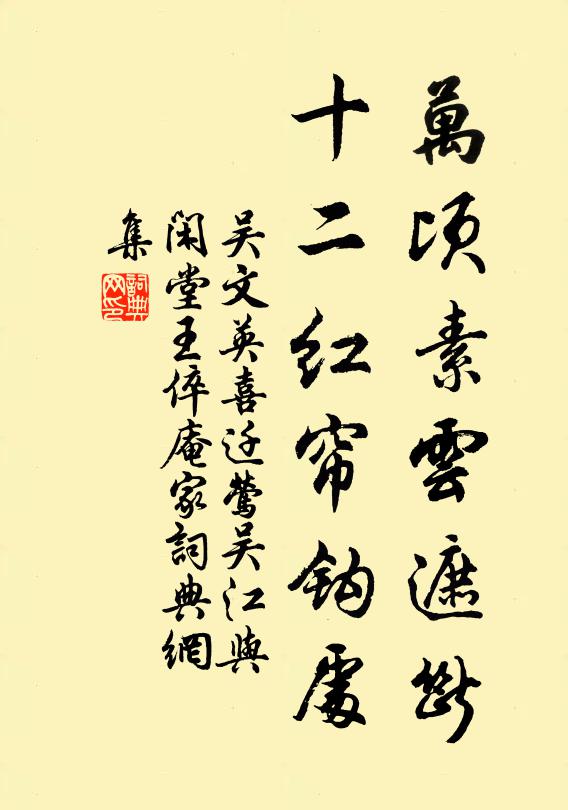 萬頃素雲遮斷
十二紅帘鈎處
吴文英喜迁鶯吴江與
閑堂王倅庵家詞典網
集
詞典
网印